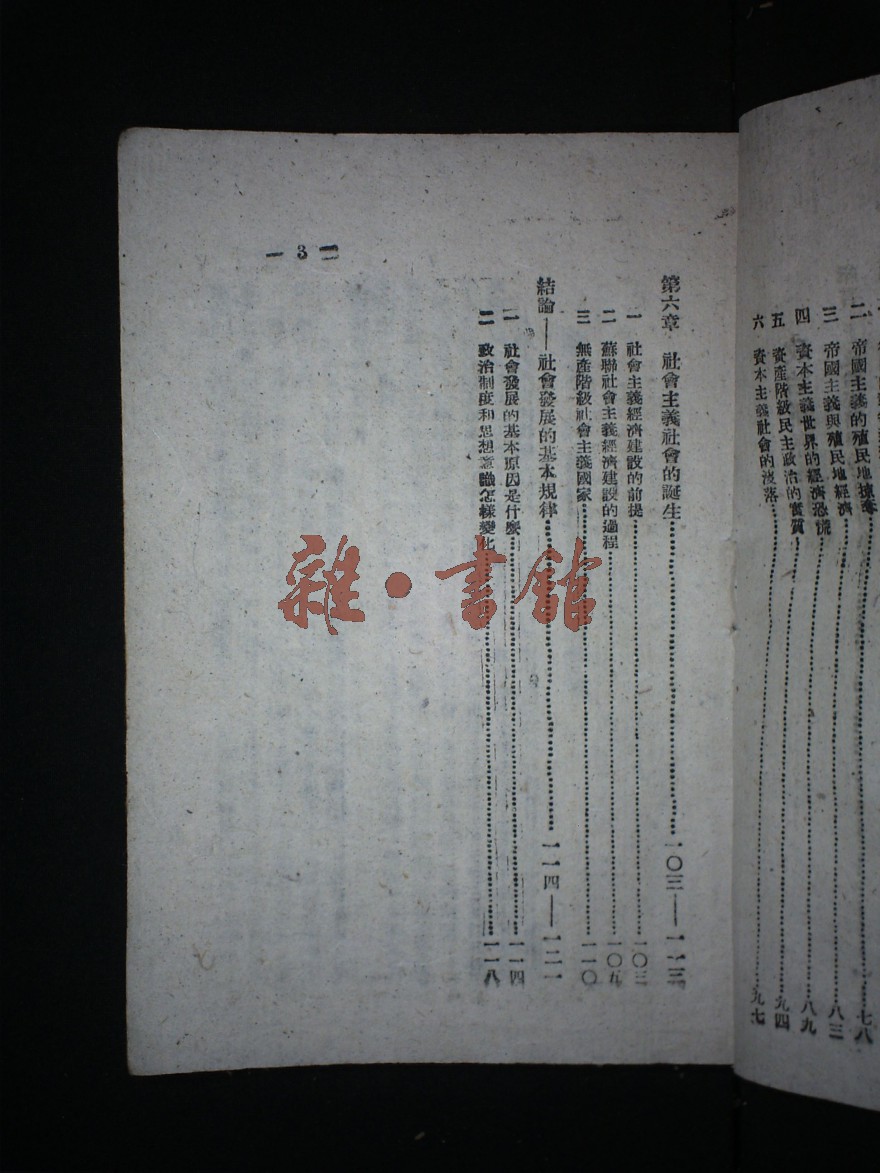 二 帝國主義的殖民地掠奪……七八
三 帝國主義與殖民地經濟……八三
四 資本主義世界的經濟恐慌……八九
五 資產階級民主政治的實質……九四
六 資本主義社會的沒落……九七
第六章 社會主義社會的誕生……一〇三——一一三
一 社會主義經濟建設的前提……一〇三
二 蘇聯社會主義經濟建設的過程……一〇五
三 無產階級社會主義國家……一一〇
結論——社會發展的基本規律……一一四——一二一
一 社會發展的基本原因是什麼……一一四
二 政治制度和思想意識怎樣變化……一一八
— 3 —
雜·書館